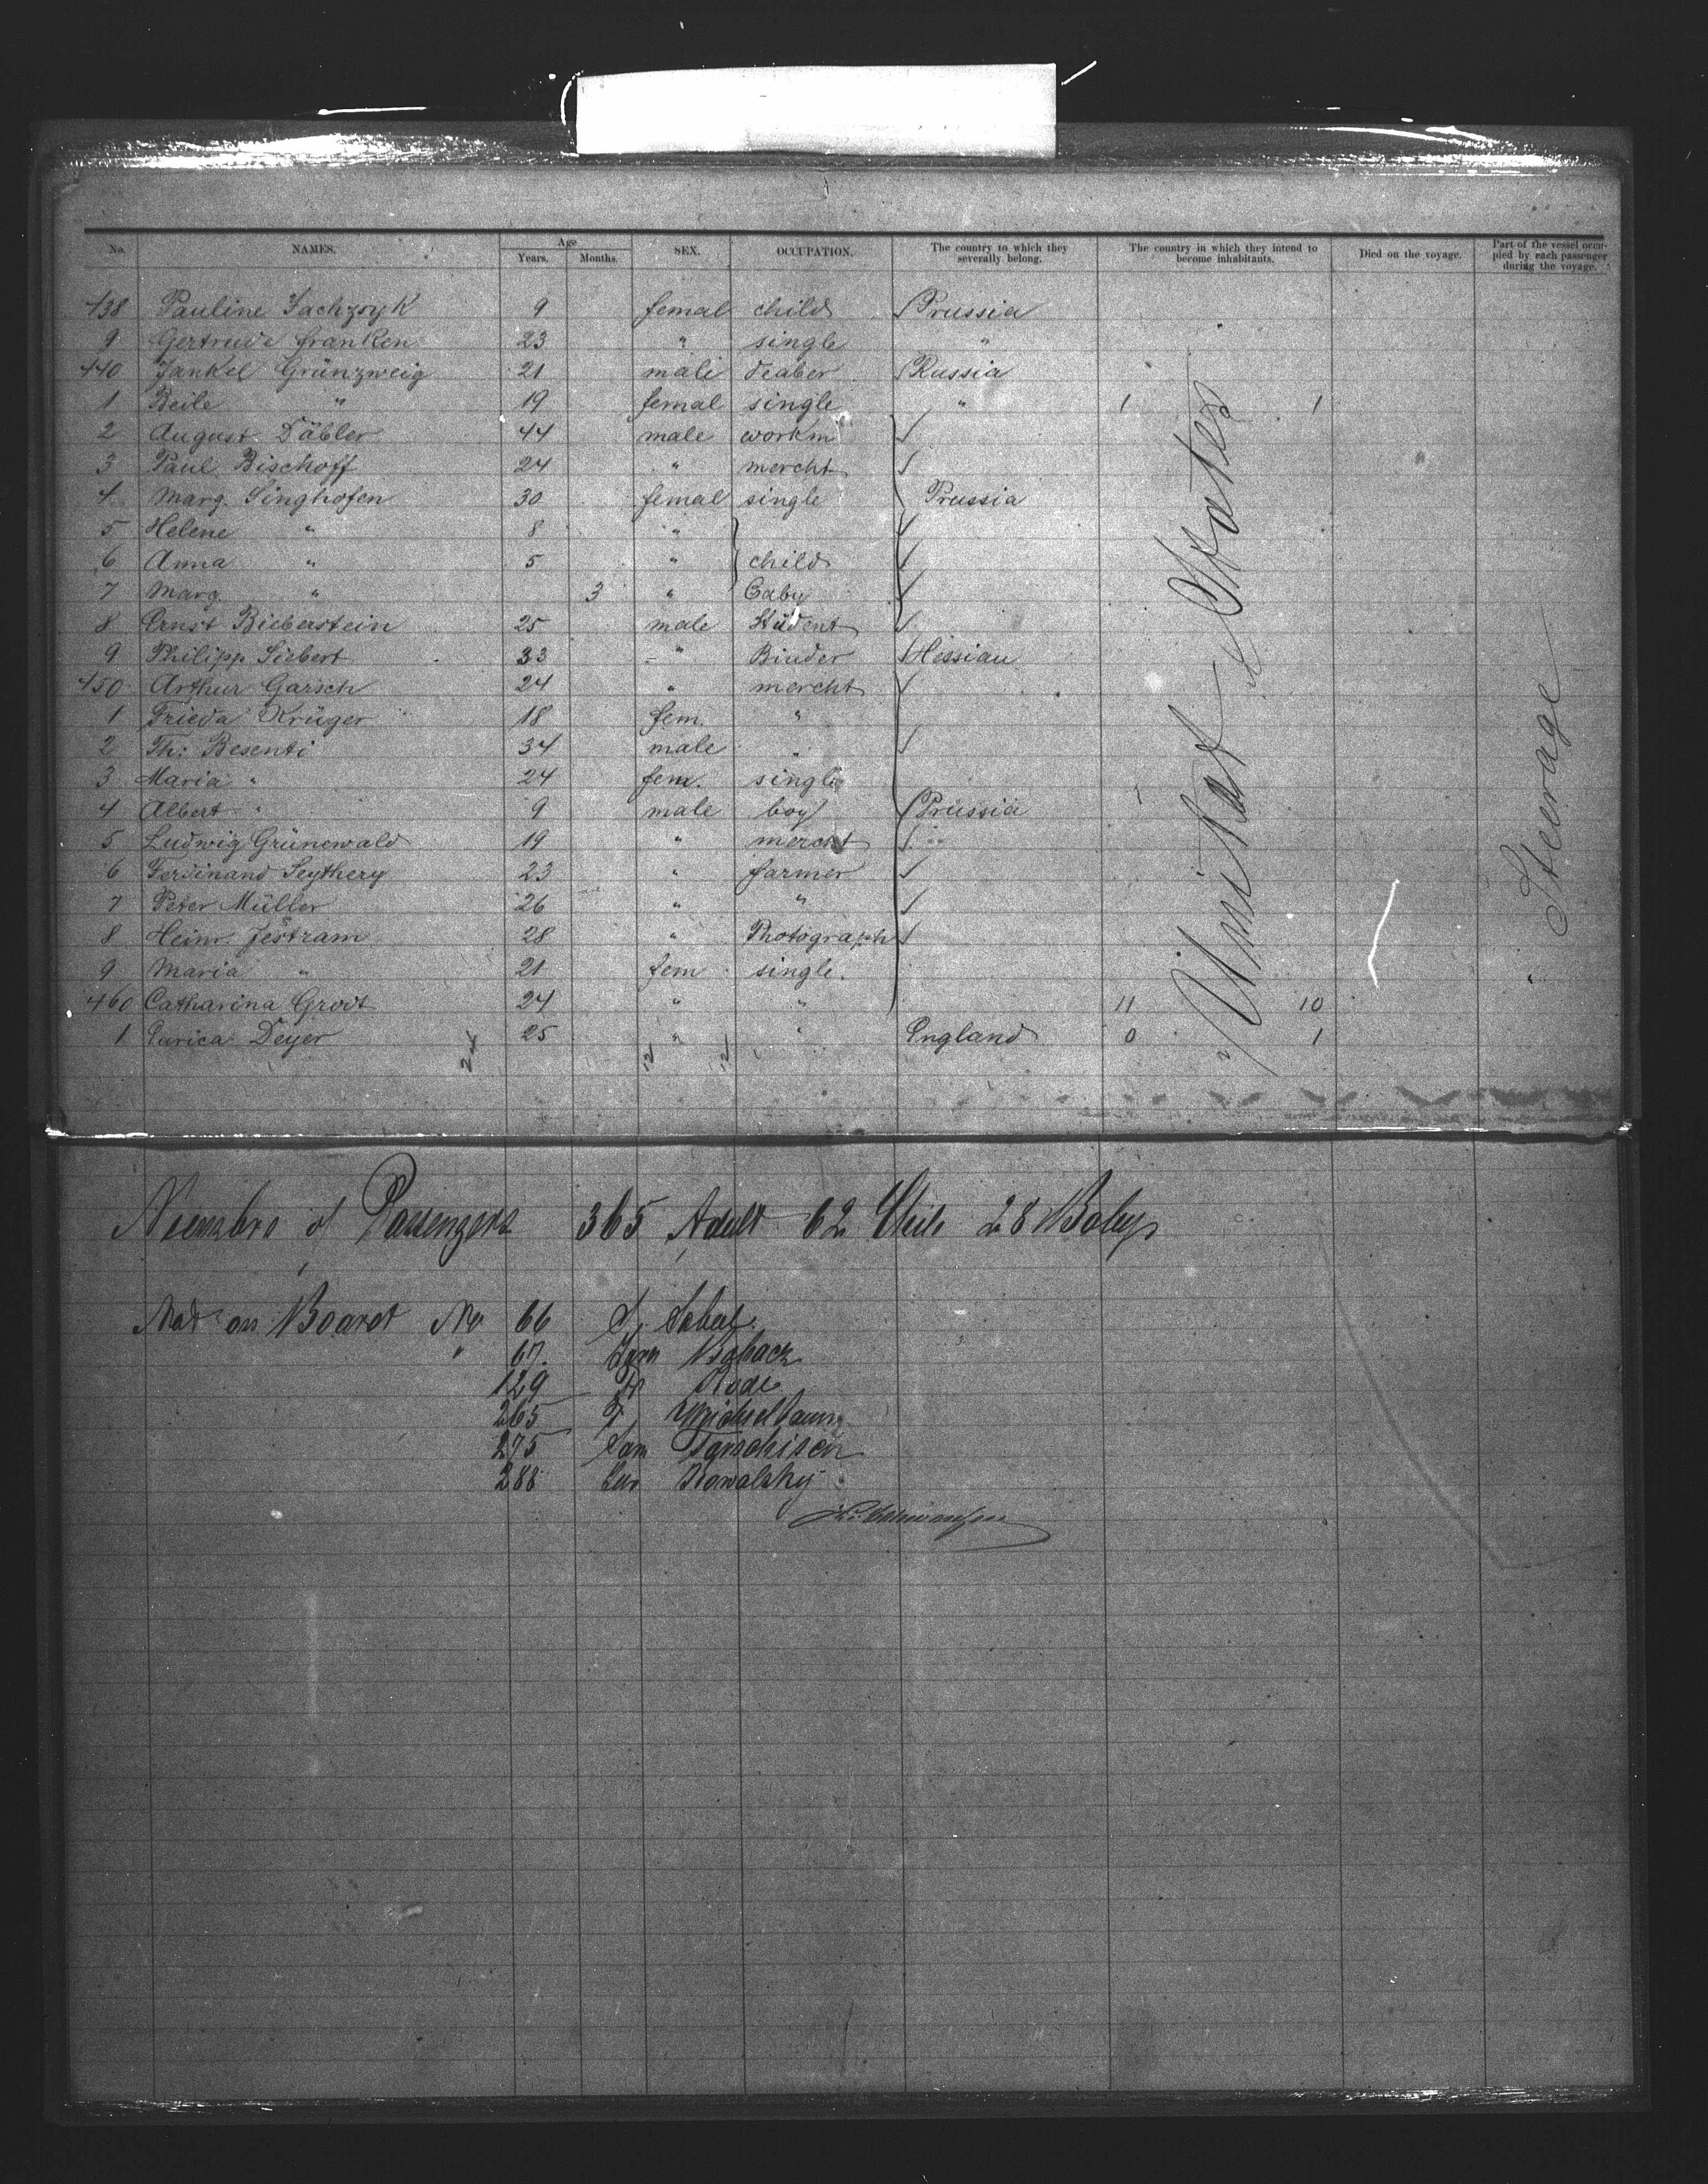 No. NAMES. Age Years. Months. SEX. OCCUPATION. The country to which they severally belong. The country in which they intend to become inhabitants. Died on the voyage. Part of the vessel occupied by each passenger during the voyage.
438 Pauline 9 femal child Prussia
9 Gertrude Franken 23 " single "
440 Jankel Grünzweig 21 male deaber Russia
1 Beile " 19 femal single " 1 1
2 August Däbler 44 male workm
3 Paul Bischoff 24 " mercht
4 Marg. Singhofen 30 femal single Prussia
5 Helene " 8 "
6 Anna " 5 " child
7 Marg. " 3 " Baby
8 Ernst Bieberstein 25 male Student
9 Philipp Siebert 33 " Binder Hessian
450 Arthur Garsch 24 " mercht
1 Frieda Krüger 18 fem. "
2 Th: Besenti 34 male "
3 Maria " 24 fem. single
4 Albert " 9 male boy Prussia
5 Ludwig Grünewald 19 " mercht
6 Ferdinand 23 " farmer
7 Peter Müller 26 " "
8 Heinr. Jestram 28 " Photograph
9 Maria " 21 fem single.
460 Catharina Groot 24 " " 11 10
1 Deyer 25 " " England 0 1
24 12 12
Unitat States
Steerage
"
of Passengers 365 Adult 62 28 Babys
Not on Board No 66 S.
" 67.
129 Rode
265 F,
275 Sam
288 Kowalsky